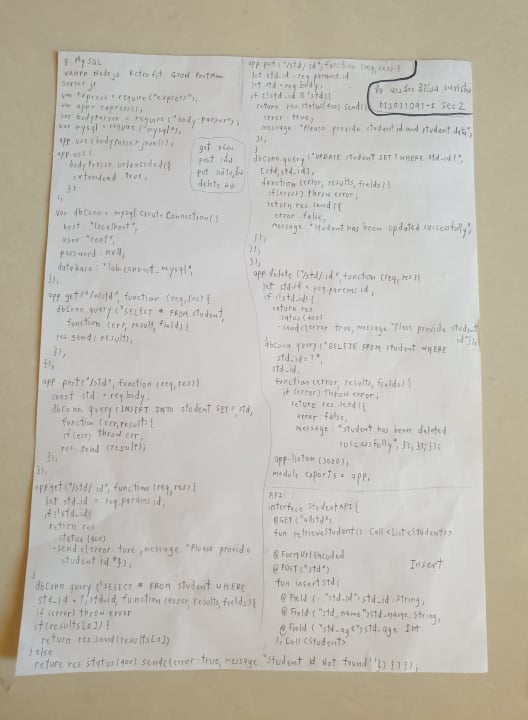 8. MySQL
XAMPP Nodejs Retrofit GSON Postman
server.js
var express = require("express");
var app = express();
var bodyParser = require("body-parser");
var mysql = require("mysql");
app.use(bodyParser.json());
app.use(
bodyParser.urlencoded({
extendend: true,
})
);
get
post เพิ่ม
put แก้ไข
delete ลบ
var dbConn = mysql.createConnection({
host: "localhost",
user: "root",
password: null,
database: "lab-connect_mysql",
});
app.get("/allstd", function (req,res) {
dbConn.query("SELECT * FROM student,
function (err, result, field) {
res.send(results);
});
});
app.post("/std", function (req,res) {
const std = req.body,
dbConn.query(INSERT INTO student SET?, std,
function (err,result) {
if(err) throw err,
res.send(result);
});
});
app.get("/std/:id", function (req,res) {
let std_id = req.params.id,
if(!std_id){
return res
.status(400)
.send({error: ture, message: "Please provide
student id"});
}
dbConn.query("SELECT * FROM student WHERE
std_id = ?, std_id, function (error, results, fields){
if(error) throw error
if(results[0]) {
return res.send(results[0])
} else
return res.status(400) send({error: true, message "Student Id Not found"}) } });
app.put("/std/:id", function (req,res) {
let std_id = req.params.id
let std = req.body,
if (!std_id || !std){
return res.status(400).send({
error: true,
message: "Please provide student id and student data",
});
}
dbConn.query("UPDATE student SET? WHERE std_id?",
[std, std_id],
function (error, results, fields) {
if(error) throw error,
return res.send({
error: false,
message: "student has been updated successfully",
});
});
});
b15021091-2 Sec 2
app.delete("/std/:id", function (req, res){
let std_id = req.params.id,
if (!std_id) {
return res
.satus(400)
.send({error: true, message: "Pleas provide student
id"});
}
dbConn.query("DELETE FROM student WHERE
std_id = ?",
std_id,
function (error, results, fields) {
if (error) throw error,
return res.send({
error: false,
message: "student has been deleted
successfully", }); });});
app.listion(3000),
module.exports = app,
API:
interface StudentAPI{
@GET("allstd")
fun retrieveStudent(): Call<List<student>>
@FormUrlEncoded
@POST("std")
Insert
fun insertStd(
@Field("std_id")std_id: String,
@Field("std_name")std_name: String,
@Field("std_age")std_age: Int
): Call<Student>